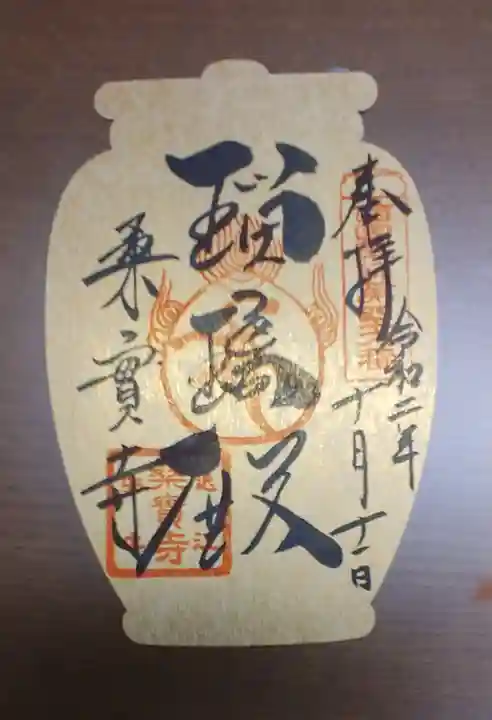 奉拝
令和二年
十月十一日
瑠璃殿
桑實寺
桑實寺